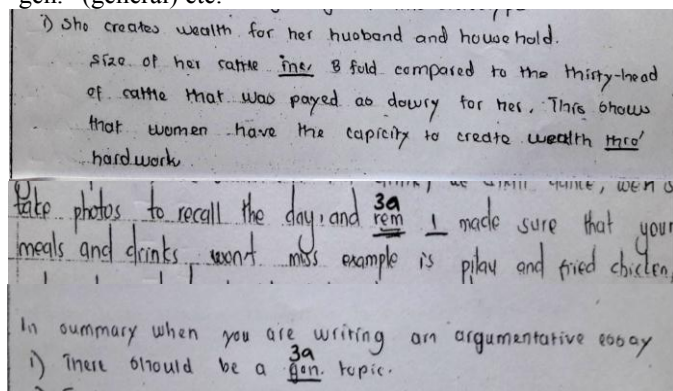 gen." (general) etc.
i) Sho creates wealth for her husband and household.
size of her cattle inc. 8 fold compared to the thirty-head
of cattle that was payed as dowry for her. This shows
that women have the capicity to create wealth thro'
hardwork.
take photos to recall the day, and rem I made sure that your
3a
meals and drinks wont miss example is pilau and fried chicken,
In summary when you are writing an argumentative essay
3a
i) There should be a gen. topic.